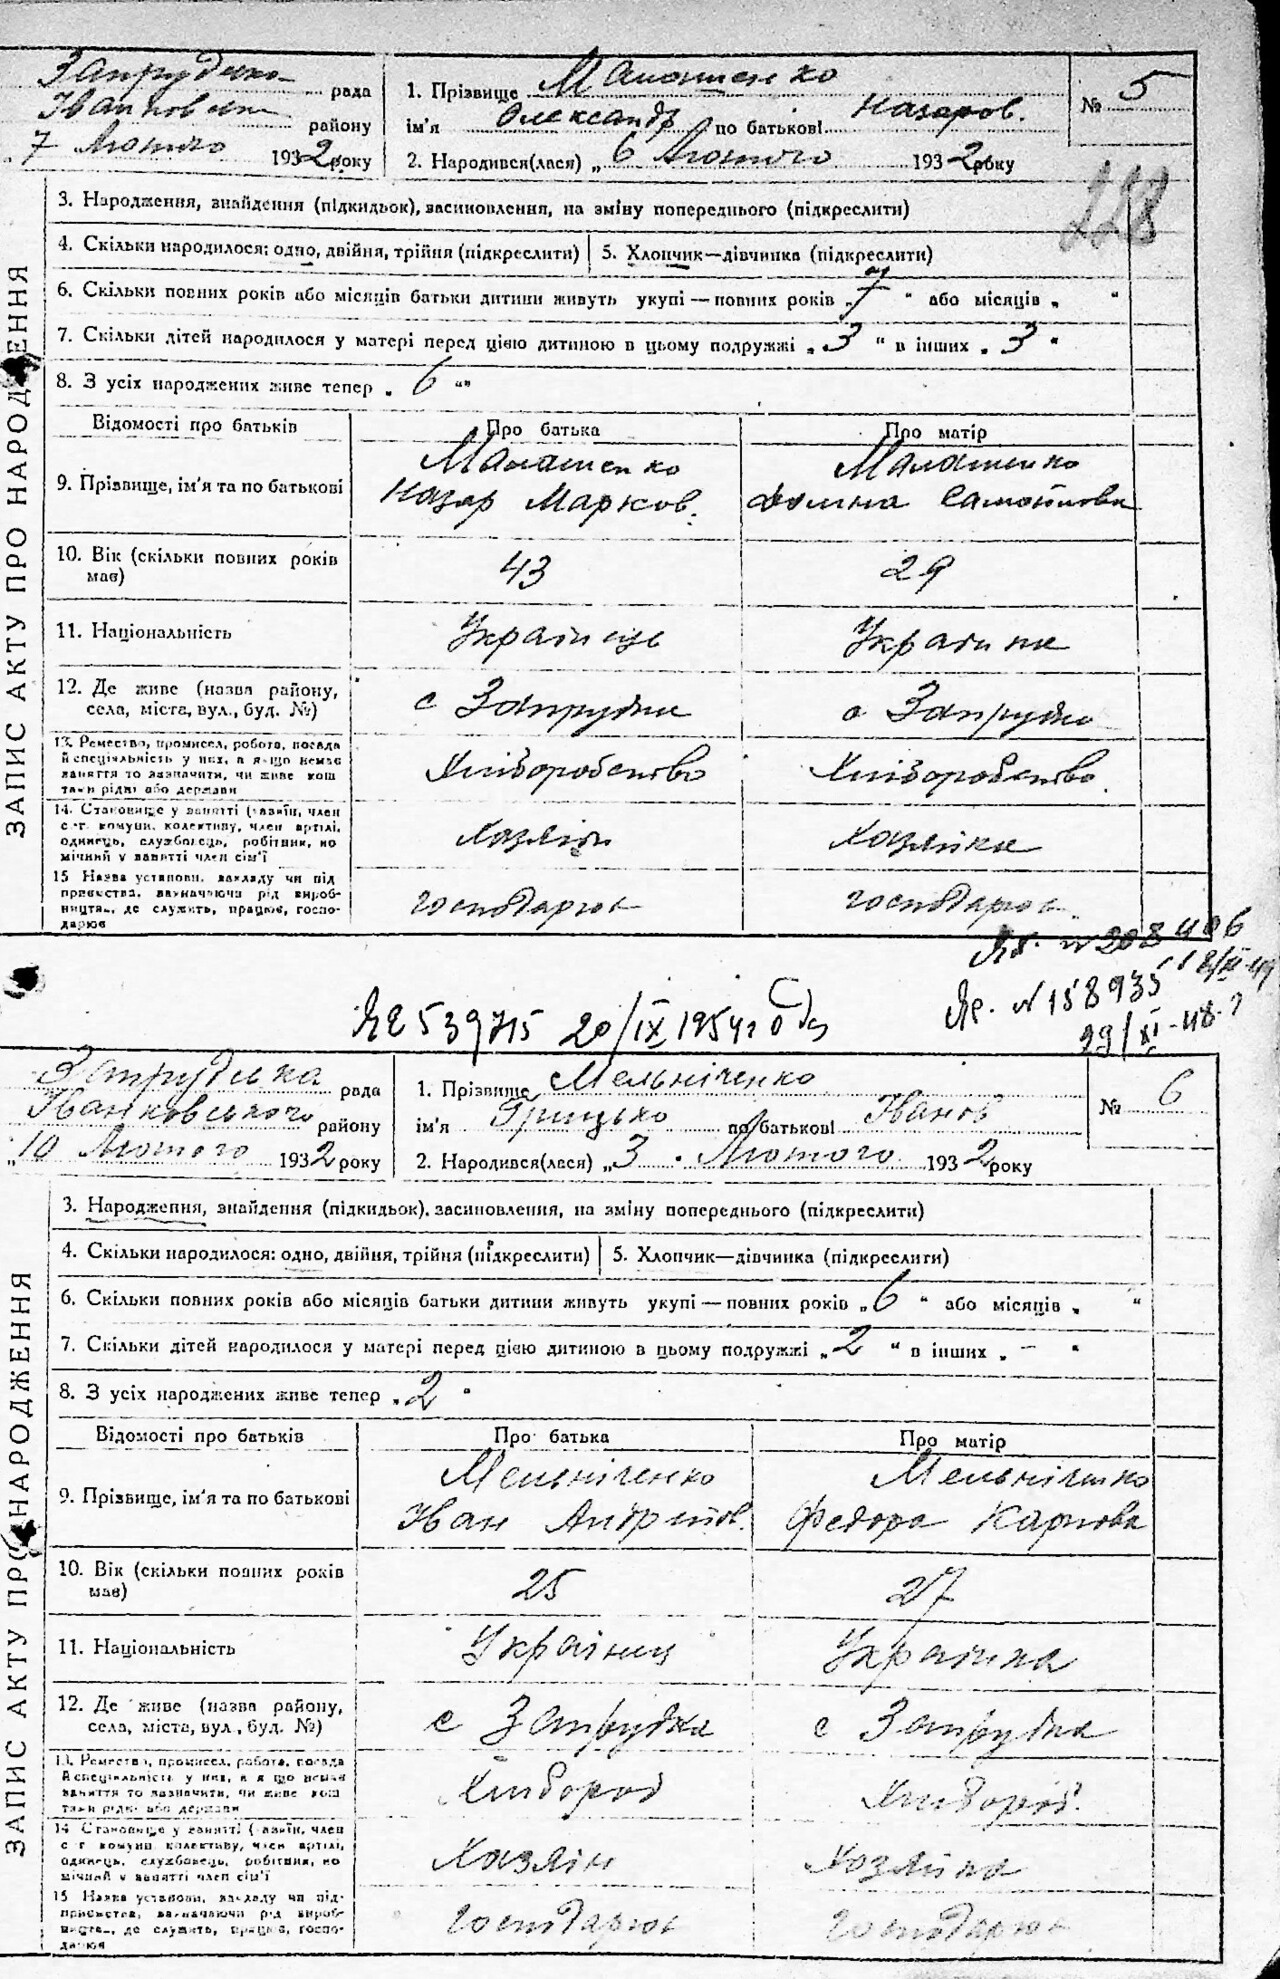 Запрудська рада
Іванковськ району
"7 Лютого 1932 року
1. Прізвище Малашенко
ім'я Олександр по батькові Назаров.
2. Народився(лася) „6 Лютого 1932 року
№ 5
228
ЗАПИС АКТУ ПРО НАРОДЖЕННЯ
3. Народження, знайдення (підкидьок), засиновлення, на зміну попереднього (підкреслити)
4. Скільки народилося: одно, двійня, трійня (підкреслити) 5. Хлопчик—дівчинка (підкреслити)
6. Скільки повних років або місяців батьки дитини живуть укупі—повних років „7" або місяців „ "
7. Скільки дітей народилося у матері перед цією дитиною в цьому подружжі „3" в інших „3"
8. З усіх народжених живе тепер „6"
Відомості про батьків Про батька Про матір
9. Прізвище, ім'я та по батькові
Малашенко Назар Марков.
Малашенко Самойлова
10. Вік (скільки повних років має) 43 29
11. Національність Українець Українка
12. Де живе (назва району, села, міста, вул., буд. №) с Запрудка с Запрудка
13. Ремество, промисел, робота, посада й спеціяльність у них, а якщо немає заняття то зазначити, чи живе кошта­ми рідні або держави
Хліборобство Хліборобство
14. Становище у занятті (хазяїн, член с.-г. комуни, колективу, член артілі, одинець, службовець, робітник, помічний у занятті член сім'ї
Хазяїн Хазяйка
15 Назва установи, закладу чи підприємства, зазначаючи рід виробництва, де служить, працює, господарює
господарює господарює
№ 208406
№ 158935
29/XI-48
539715 20/IX 1954
Запрудська рада
Іванковського району
„10 Лютого 1932 року
1. Прізвище Мельніченко
ім'я Грицько по батькові Іванов
2. Народився(лася) „3 Лютого 1932 року
№ 6
ЗАПИС АКТУ ПРО НАРОДЖЕННЯ
3. Народження, знайдення (підкидьок), засиновлення, на зміну попереднього (підкреслити)
4. Скільки народилося: одно, двійня, трійня (підкреслити) 5. Хлопчик—дівчинка (підкреслити)
6. Скільки повних років або місяців батьки дитини живуть укупі—повних років „6" або місяців „ "
7. Скільки дітей народилося у матері перед цією дитиною в цьому подружжі „2" в інших „–"
8. З усіх народжених живе тепер „2"
Відомості про батьків Про батька Про матір
9. Прізвище, ім'я та по батькові
Мельніченко Іван Андрійов.
Мельніченко Федора Карпова
10. Вік (скільки повних років має) 25 27
11. Національність Українец Українка
12. Де живе (назва району, села, міста, вул., буд. №) с Запрудка с Запрудка
13. Ремество, промисел, робота, посада й спеціяльність у них, а якщо немає заняття то зазначити, чи живе коштами рідні або держави
Хлібороб Хлібороб.
14 Становище у занятті (хазяїн, член с.-г. комуни, колективу, член артілі, одинець, службовець, робітник, помічний у занятті член сім'ї
Хазяїн Хазяйка
15 Назва установи, закладу чи підприємства, зазначаючи рід виробництва, де служить, працює, господарює
господарює господарює